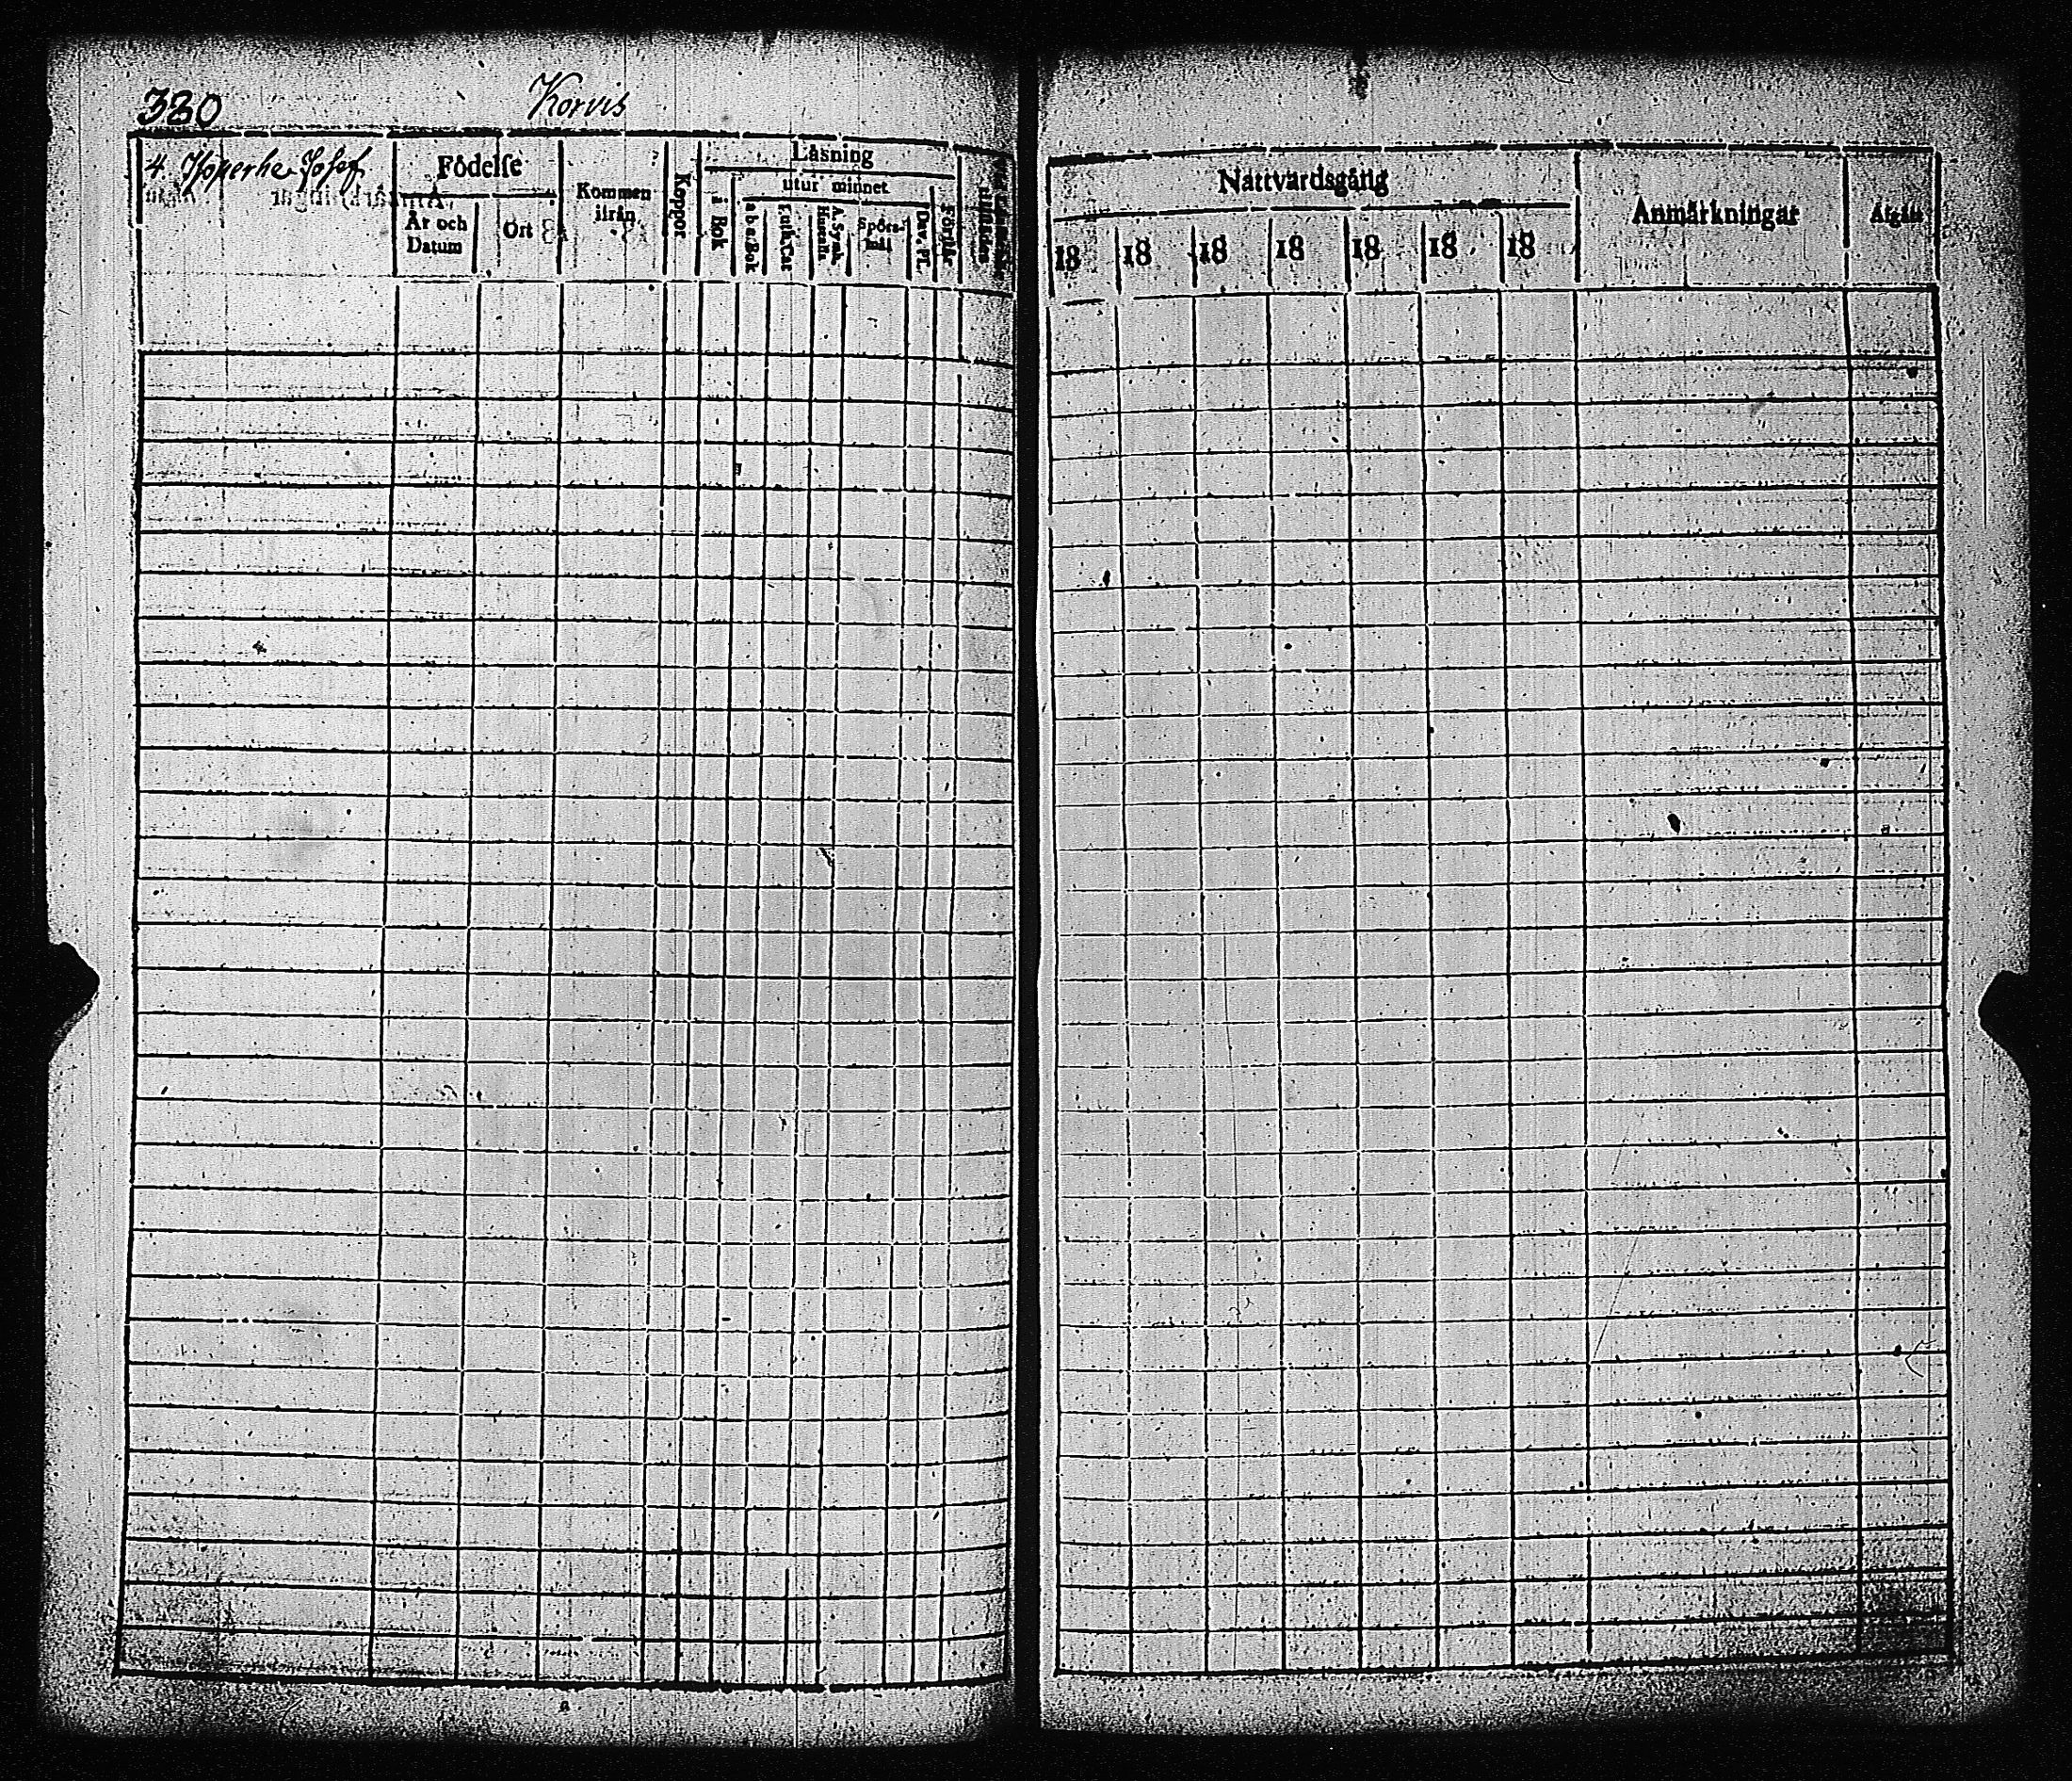 330
Korvis
4. Isoperhe Josef
Födelse
År och Datum
Ort
Kommen ifrån
Koppor
Läsning
i Bok
utur minnet
a b c Bok
Luth. Cat
A. Symb. Hustafla
Spörsmål
Dav. Ps.
Förstår
Nattvardsgång
18 18 18 18 18 18 18
Anmärkningar
Afgått